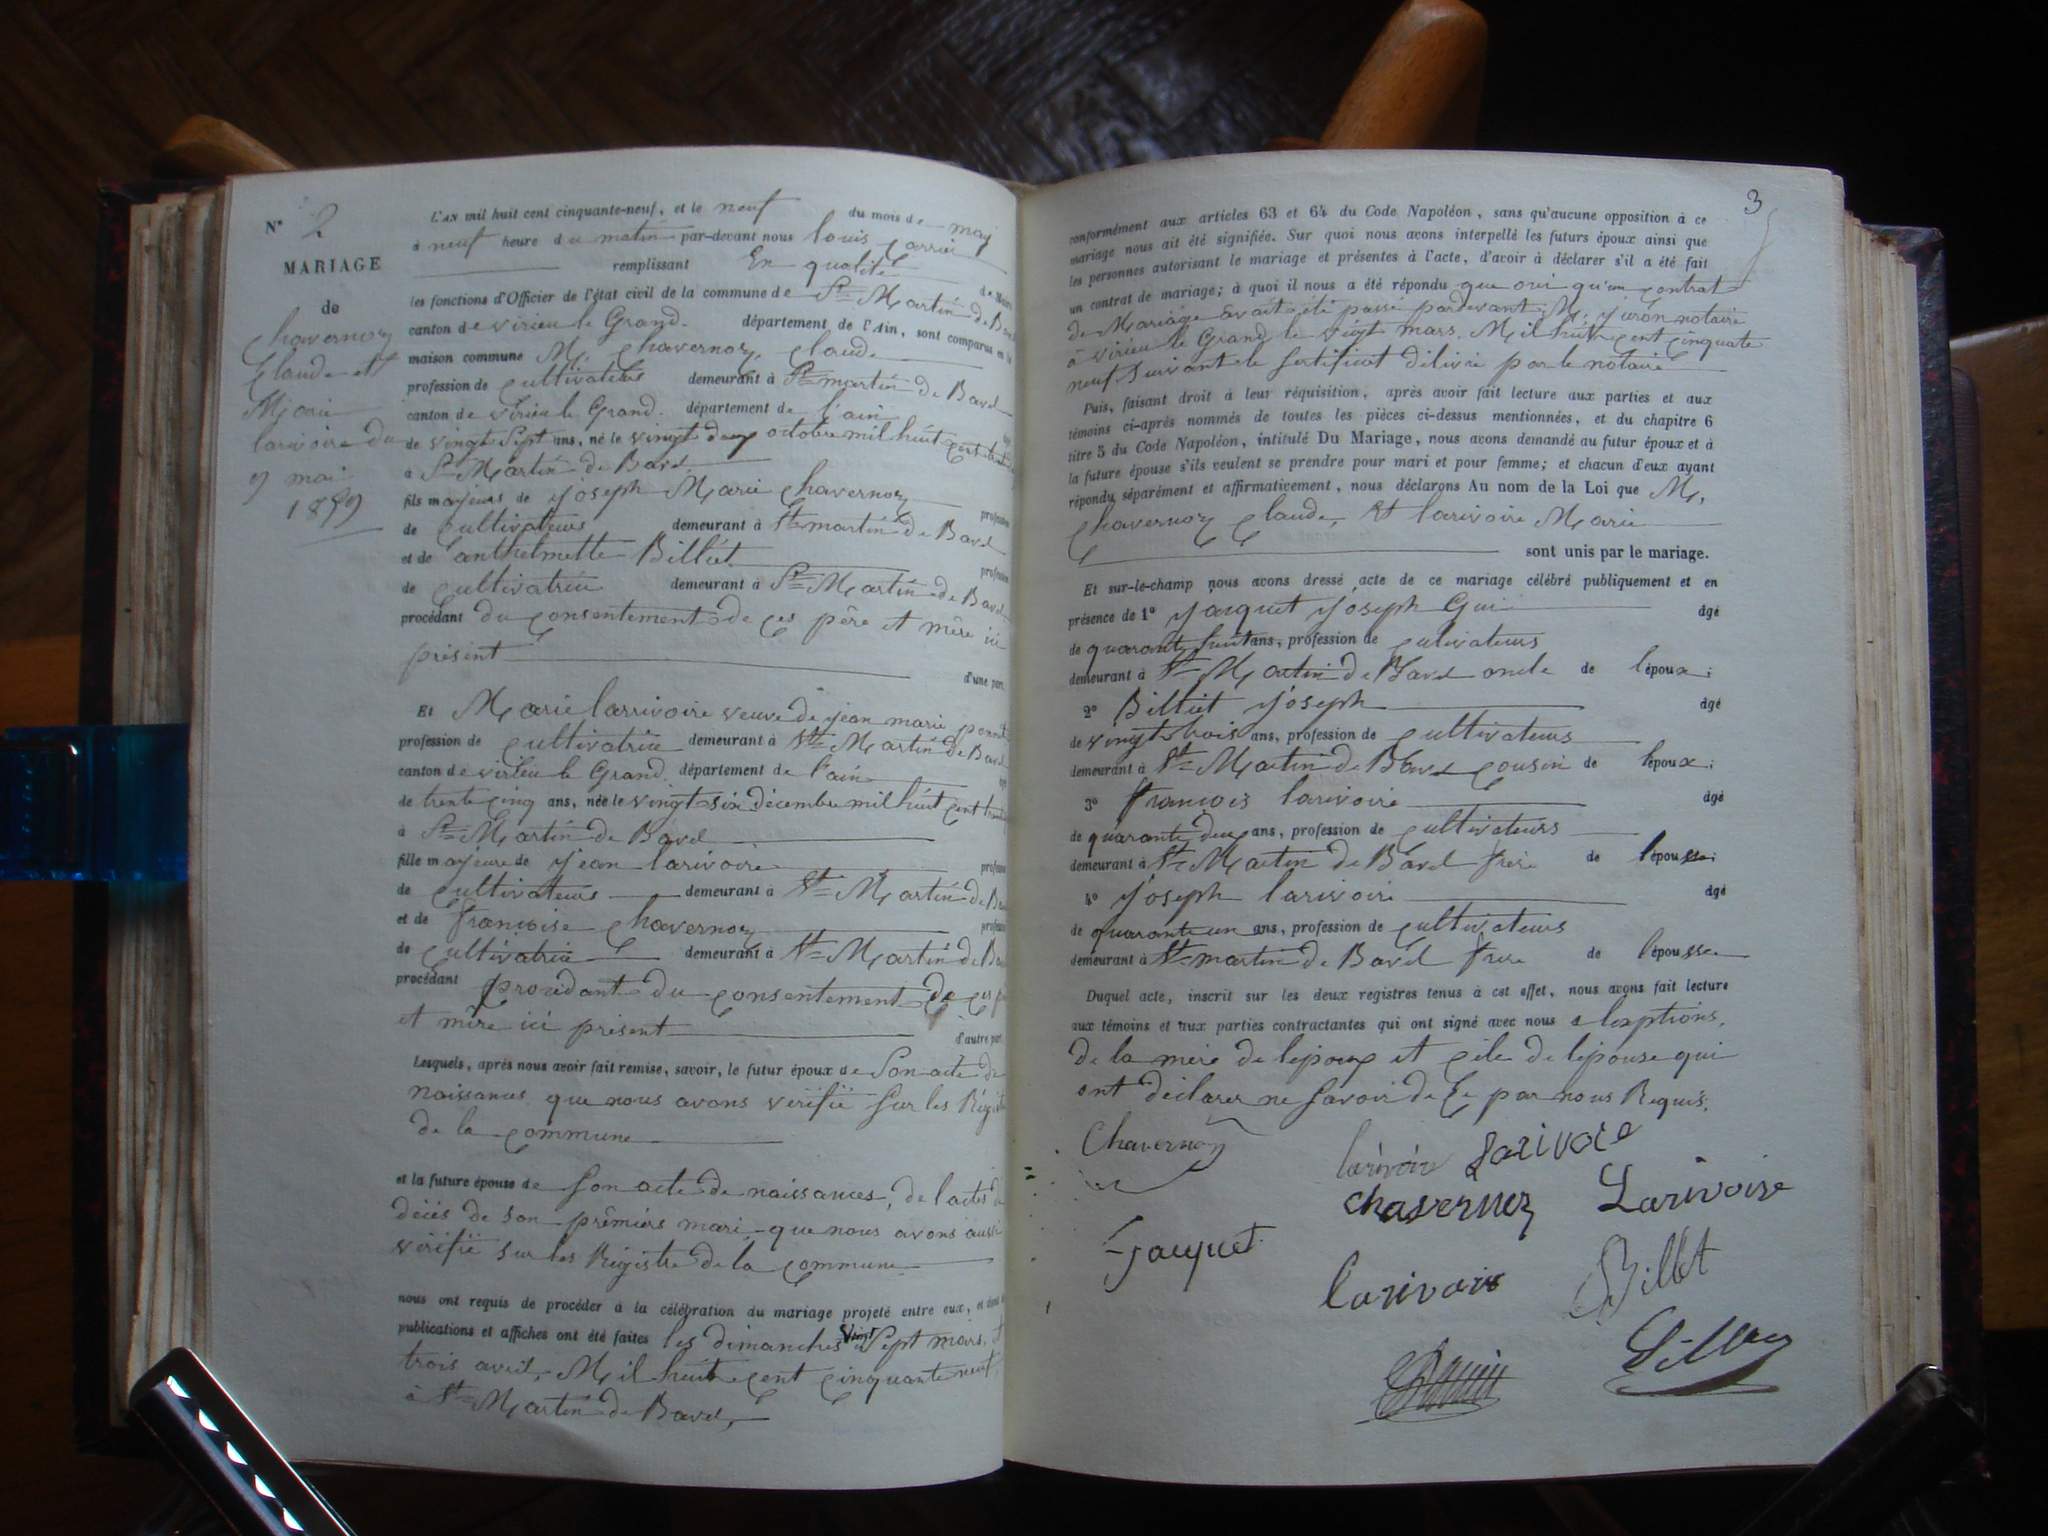 N° 2
MARIAGE
de
Chavernoz
Claude et
Marie
larivoire du
9 mai
1859
L'AN mil huit cent cinquante-neuf, et le neuf du mois de maj
à neuf heure du matin par-devant nous louis Carrier
remplissant En qualité de Maire
les fonctions d'Officier de l'état civil de la commune de St Martin de Bavel
canton de virieu le Grand. département de l'Ain, sont comparus en la
maison commune M. Chavernoz Claude
profession de Cultivateurs demeurant à St martin de Bavel
canton de virieu le Grand. département de l'ain
de vingt Sept ans, né le vingt deux octobre mil huit cent
à St Martin de Bavel
fils majeurs de joseph Marie Chavernoz profession
de Cultivateurs demeurant à St martin de Bavel
et de anthelmette Billiet profession
de Cultivatrice demeurant à St Martin de Bavel
procédant du Consentement de ces père et mère ici
présent d'une part.
Et Marie larrivoire veuve de jean marie
profession de Cultivatrice demeurant à St Martin de Bavel
canton de virieu le Grand. département de l'ain
de trente cinq ans, née le vingt six décembre mil huit cent
à St Martin de Bavel
fille majeure de jean larivoire profession
de Cultivateurs demeurant à St Martin de
et de françoise Chavernoz profession
de Cultivatrice demeurant à St Martin de
procédant procédant du Consentement de ces
et mère ici présent d'autre part.
Lesquels, après nous avoir fait remise, savoir, le futur époux de Son acte de
naissances que nous avons vérifié sur les Régistre
de la Commune
et la future épouse de son acte de naissances, de l'actes de
décès de son prêmiers mari que nous avons aussi
vérifié sur les Régistre de la Commune
nous ont requis de procéder à la célébration du mariage projeté entre eux, et dont les
publications et affiches ont été faites les dimanches vingt Sept mars, et
trois avril, Mil huit cent cinquante neuf
à St Martin de Bavel,
3
conformément aux articles 63 et 64 du Code Napoléon, sans qu'aucune opposition à ce
mariage nous ait été signifiée. Sur quoi nous avons interpellé les futurs époux ainsi que
les personnes autorisant le mariage et présentes à l'acte, d'avoir à déclarer s'il a été fait
un contrat de mariage; à quoi il nous a été répondu que oui qu'un Contrat
de Mariage avait été passé pardevant M. juron notaire
à virieu le Grand le vingt mars. Mil huit cent cinquate
neuf Suivant le Sertificat délivré par le notaire
Puis, faisant droit à leur réquisition, après avoir fait lecture aux parties et aux
témoins ci-après nommés de toutes les pièces ci-dessus mentionnées, et du chapitre 6
titre 5 du Code Napoléon, intitulé Du Mariage, nous avons demandé au futur époux et à
la future épouse s'ils veulent se prendre pour mari et pour femme; et chacun d'eux ayant
répondu séparément et affirmativement, nous déclarons Au nom de la Loi que M,
Chavernoz Claude, Et larivoire Marie
sont unis par le mariage.
Et sur-le-champ nous avons dressé acte de ce mariage célébré publiquement et en
présence de 1° jacquet joseph Gui âgé
de quarante huit ans, profession de Cultivateurs
demeurant à St Martin de Bavel oncle de l'époux;
2° Billiet joseph âgé
de vingt trois ans, profession de Cultivateurs
demeurant à St Martin de Bavel Cousin de l'époux;
3° françois larivoire âgé
de quarante deux ans, profession de Cultivateurs
demeurant à St Martin de Bavel frère de l'épousse;
4° joseph larivoire âgé
de quarante un ans, profession de Cultivateurs
demeurant à St martin de Bavel frere de l'épousse
Duquel acte, inscrit sur les deux registres tenus à cet effet, nous avons fait lecture
aux témoins et aux parties contractantes qui ont signé avec nous à lexptions,
de la mère de l'époux et Celle de l'épouse qui
ont déclarer ne Savoir de Ce par nous Requis.
Chavernoz
larivoire Larivoire
Chavernez Larivoire
Jacquet
Larivoire Billet